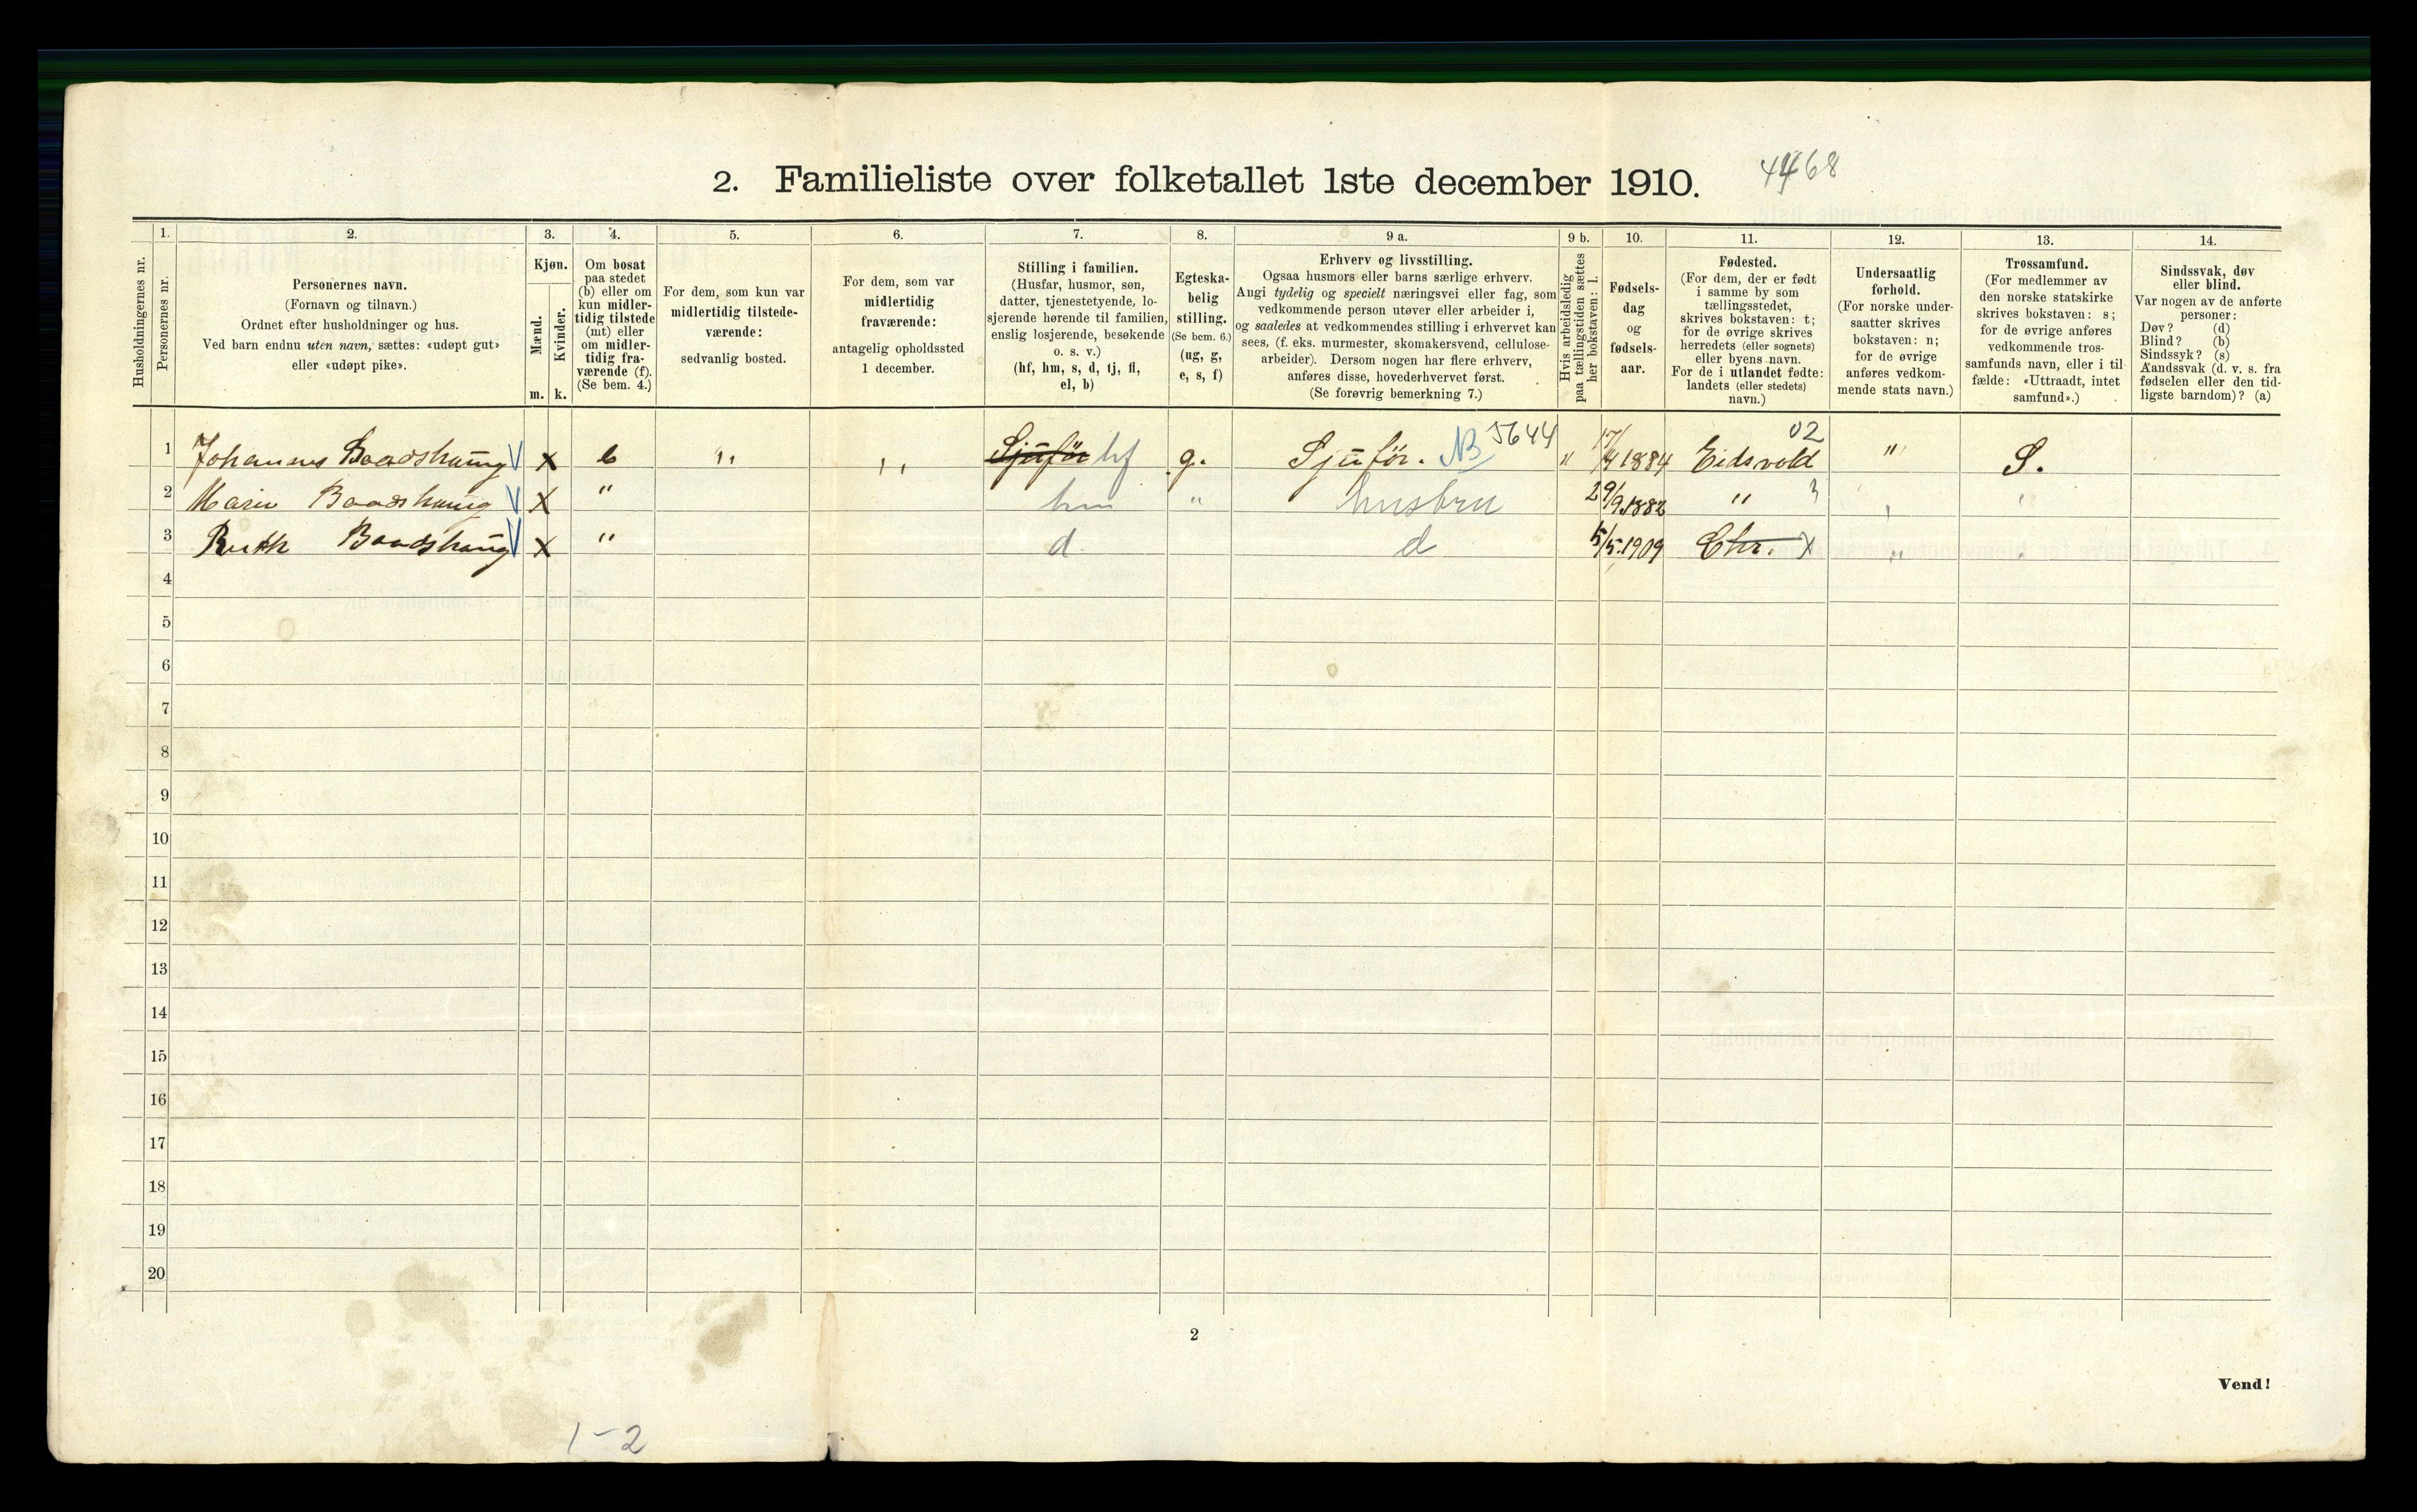 2. Familieliste over folketallet 1ste december 1910. 4468
Husholdningernes nr.
1.
Personernes nr.
2.
Personernes navn.
(Fornavn og tilnavn.)
Ordnet efter husholdninger og hus.
Ved barn endnu uten navn, sættes: «udøpt gut»
eller «udøpt pike».
3.
Kjøn.
Mænd.
Kvinder.
m. k.
4.
Om bosat
paa stedet
(b) eller om
kun midler-
tidig tilstede
(mt) eller
om midler-
tidig fra-
værende (f).
(Se bem. 4.)
5.
For dem, som kun var
midlertidig tilstede-
værende:
sedvanlig bosted.
6.
For dem, som var
midlertidig
fraværende:
antagelig opholdssted
1 december.
7.
Stilling i familien.
(Husfar, husmor, søn,
datter, tjenestetyende, lo-
sjerende hørende til familien,
enslig losjerende, besøkende
o. s. v.)
(hf, hm, s, d, tj, fl,
el, b)
8.
Egteska-
belig
stilling.
(Se bem. 6.)
(ug, g,
e, s, f)
9 a.
Erhverv og livsstilling.
Ogsaa husmors eller barns særlige erhverv.
Angi tydelig og specielt næringsvei eller fag, som
vedkommende person utøver eller arbeider i,
og saaledes at vedkommendes stilling i erhvervet kan
sees, (f. eks. murmester, skomakersvend, cellulose-
arbeider). Dersom nogen har flere erhverv,
anføres disse, hovederhvervet først.
(Se forøvrig bemerkning 7.)
9 b.
Hvis arbeidsledig
paa tællingstiden sættes
her bokstaven: l.
10.
Fødsels-
dag
og
fødsels-
aar.
11.
Fødested.
(For dem, der er født
i samme by som
tællingsstedet,
skrives bokstaven: t;
for de øvrige skrives
herredets (eller sognets)
eller byens navn.
For de i utlandet fødte:
landets (eller stedets)
navn.)
12.
Undersaatlig
forhold.
(For norske under-
saatter skrives
bokstaven: n;
for de øvrige
anføres vedkom-
mende stats navn.)
13.
Trossamfund.
(For medlemmer av
den norske statskirke
skrives bokstaven: s;
for de øvrige anføres
vedkommende tros-
samfunds navn, eller i til-
fælde: «Uttraadt, intet
samfund».)
14.
Sindssvak, døv
eller blind.
Var nogen av de anførte
personer:
Døv? (d)
Blind? (b)
Sindssyk? (s)
Aandssvak (d. v. s. fra
fødselen eller den tid-
ligste barndom)? (a)
1 Johannes Baadshaug V x b " " Sjüför hf g. Sjüför. NB 5644 " 17/4 1884 Eidsvold 02 " S.
2 Marie Baadshaug V x " hm " husbru 29/9 1882 " "
3 Ruth Baadshaug V x " d d 5/5 1909 Chr. x " "
4
5
6
7
8
9
10
11
12
13
14
15
16
17
18
19
20
2
Vend!
1-2